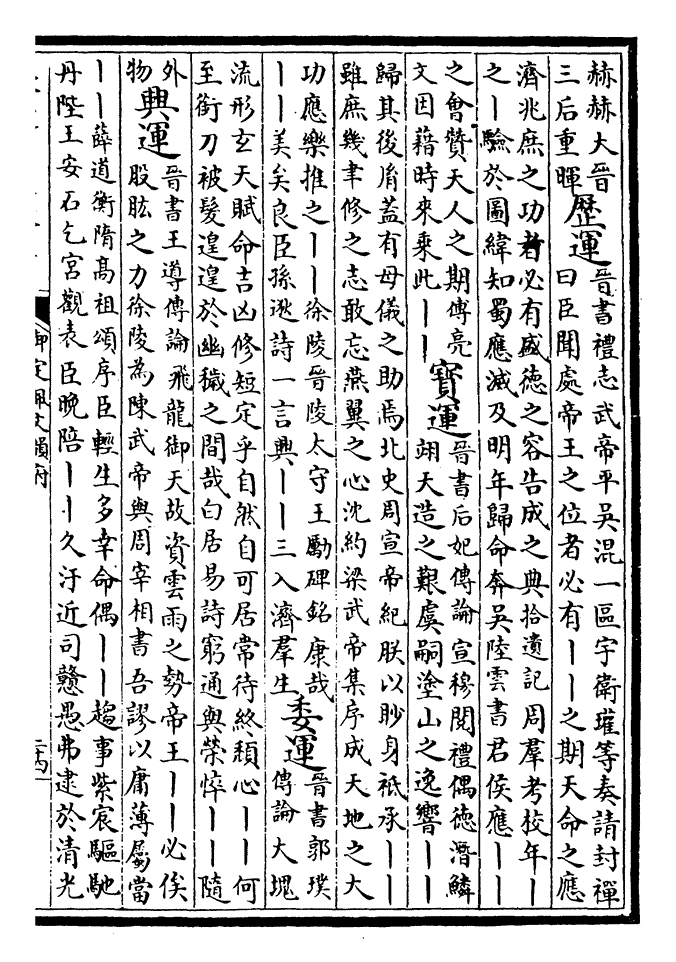 赫赫大晉
三后重暉
歴運
晉書禮志武帝平吳混一區宇衛瓘等奏請封禪
曰臣聞處帝王之位者必有丨丨之期天命之應
濟兆庶之功者必有盛德之容告成之典拾遺記周羣考校年丨
之丨驗於圖緯知蜀應滅及明年歸命奔吳陸雲書君侯應丨丨
之會贊天人之期傅亮
文因藉時來乘此丨丨
寶運
晉書后妃傳論宣穆閱禮偶德潛鱗
翊天造之艱虞嗣塗山之逸響丨丨
歸其後胤蓋有母儀之助焉北史周宣帝紀朕以眇身祗承丨丨
雖庶幾聿修之志敢忘燕翼之心沈約梁武帝集序成天地之大
功應樂推之丨丨徐陵晉陵太守王勵碑銘康哉
丨丨美矣良臣孫逖詩一言興丨丨三入濟羣生
委運
晉書郭璞
傳論大塊
流形玄天賦命吉凶修短定乎自然自可居常待終頹心丨丨何
至銜刀被髮遑遑於幽穢之間哉白居易詩窮通與榮悴丨丨隨
外
物
興運
晉書王導傳論飛龍御天故資雲雨之勢帝王丨丨必俟
股肱之力徐陵為陳武帝與周宰相書吾謬以庸薄屬當
丨丨薛道衡隋高祖頌序臣輕生多幸命偶丨丨趨事紫宸驅馳
丹陛王安石乞宮觀表臣晚陪丨丨久汙近司戇愚弗逮於清光
御定佩文韻府